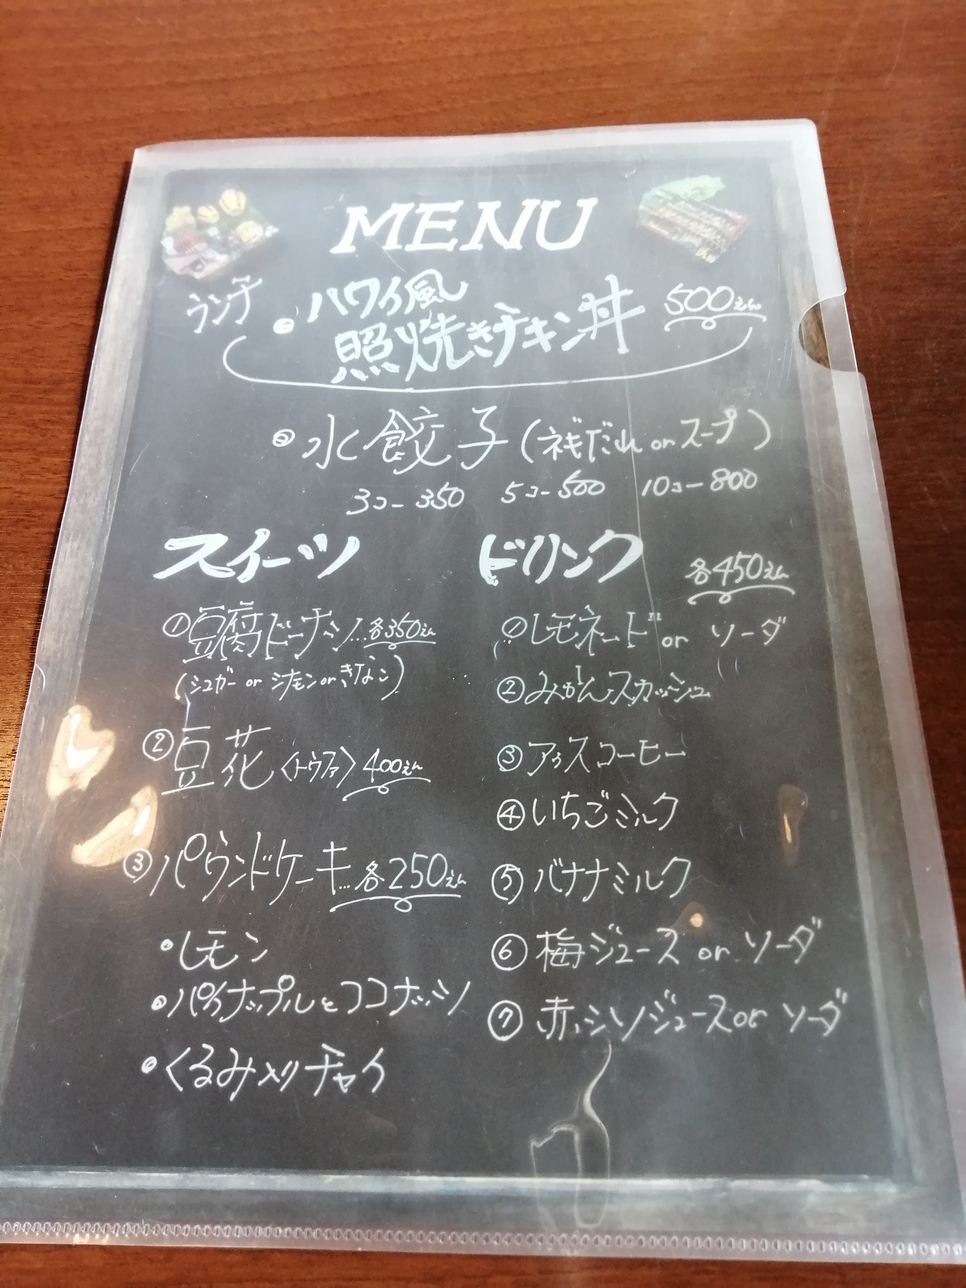 MENU
ランチ
ハワイ風
照焼きチキン丼 500えん
水餃子(ネギだれ or スープ)
3コー350 5コー500 10コー800
スイーツ
①豆腐ドーナツ…各350えん
(シュガー or シナモン or きなこ)
②豆花〈トウファ〉400えん
③パウンドケーキ…各250えん
・レモン
・パイナップルとココナッツ
・くるみ入りチャイ
ドリンク 各450えん
①レモネード or ソーダ
②みかんスカッシュ
③アイスコーヒー
④いちごミルク
⑤バナナミルク
⑥梅ジュース or ソーダ
⑦赤シソジュース or ソーダ